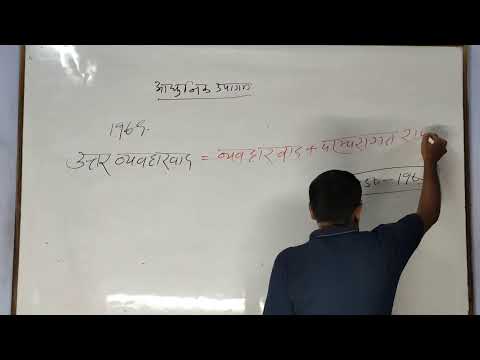 आधुनिक उपागम
1969.
उत्तर व्यवहारवाद = व्यवहारवाद + परम्परागत
50-196